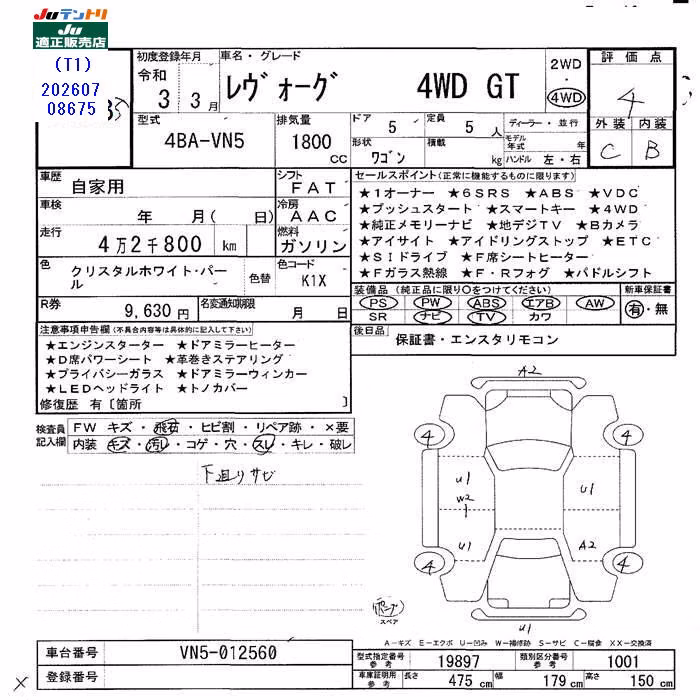 Juテントリ
Ju
適正販売店
(T1)
202607
08675
初度登録年月
令和
3 3月
車名・グレード
レヴォーグ 4WD GT
2WD
・
4WD
評価点
4
外装 内装
C B
型式
4BA-VN5
排気量
1800
cc
ドア 5
定員 5 人
形状 ワゴン
積載 kg
ディーラー・並行
モデル年式 年
ハンドル 左・右
車歴
自家用
車検
年 月( 日)
走行
4万2千800 km
色
クリスタルホワイト・パール
色替
シフト
FAT
冷房
AAC
燃料
ガソリン
色コード
K1X
R券
9,630円
名変通知期限
月 日
セールスポイント(正常に機能するものに限ります)
★1オーナー ★6SRS ★ABS ★VDC
★プッシュスタート ★スマートキー ★4WD
★純正メモリーナビ ★地デジTV ★Bカメラ
★アイサイト ★アイドリングストップ ★ETC
★SIドライブ ★F席シートヒーター
★Fガラス熱線 ★F・Rフォグ ★パドルシフト
装備品(純正品に限り○をつけてください)
PS PW ABS エアB AW
SR ナビ TV カワ
新車保証書
有・無
後日品
保証書・エンスタリモコン
注意事項申告欄(不具合内容等は具体的に記入して下さい)
★エンジンスターター ★ドアミラーヒーター
★D席パワーシート ★革巻きステアリング
★プライバシーガラス ★ドアミラーウィンカー
★LEDヘッドライト ★トノカバー
修復歴 有〔箇所 〕
検査員記入欄
FW キズ・飛石・ヒビ割・リペア跡・×要
内装 キズ・汚レ・コゲ・穴・スレ・キレ・破レ
下廻りサビ
A2
4 4
U1 U1
W2
1
U1 A2
4 4
スペア
U1
A－キズ E－エクボ U－凹み W－補修跡 S－サビ C－腐食 XX－交換済
車台番号
VN5-012560
登録番号
×
型式指定番号 参考
19897
類別区分番号 参考
1001
車庫証明用 参考
長さ 475 cm
幅 179 cm
高さ 150 cm